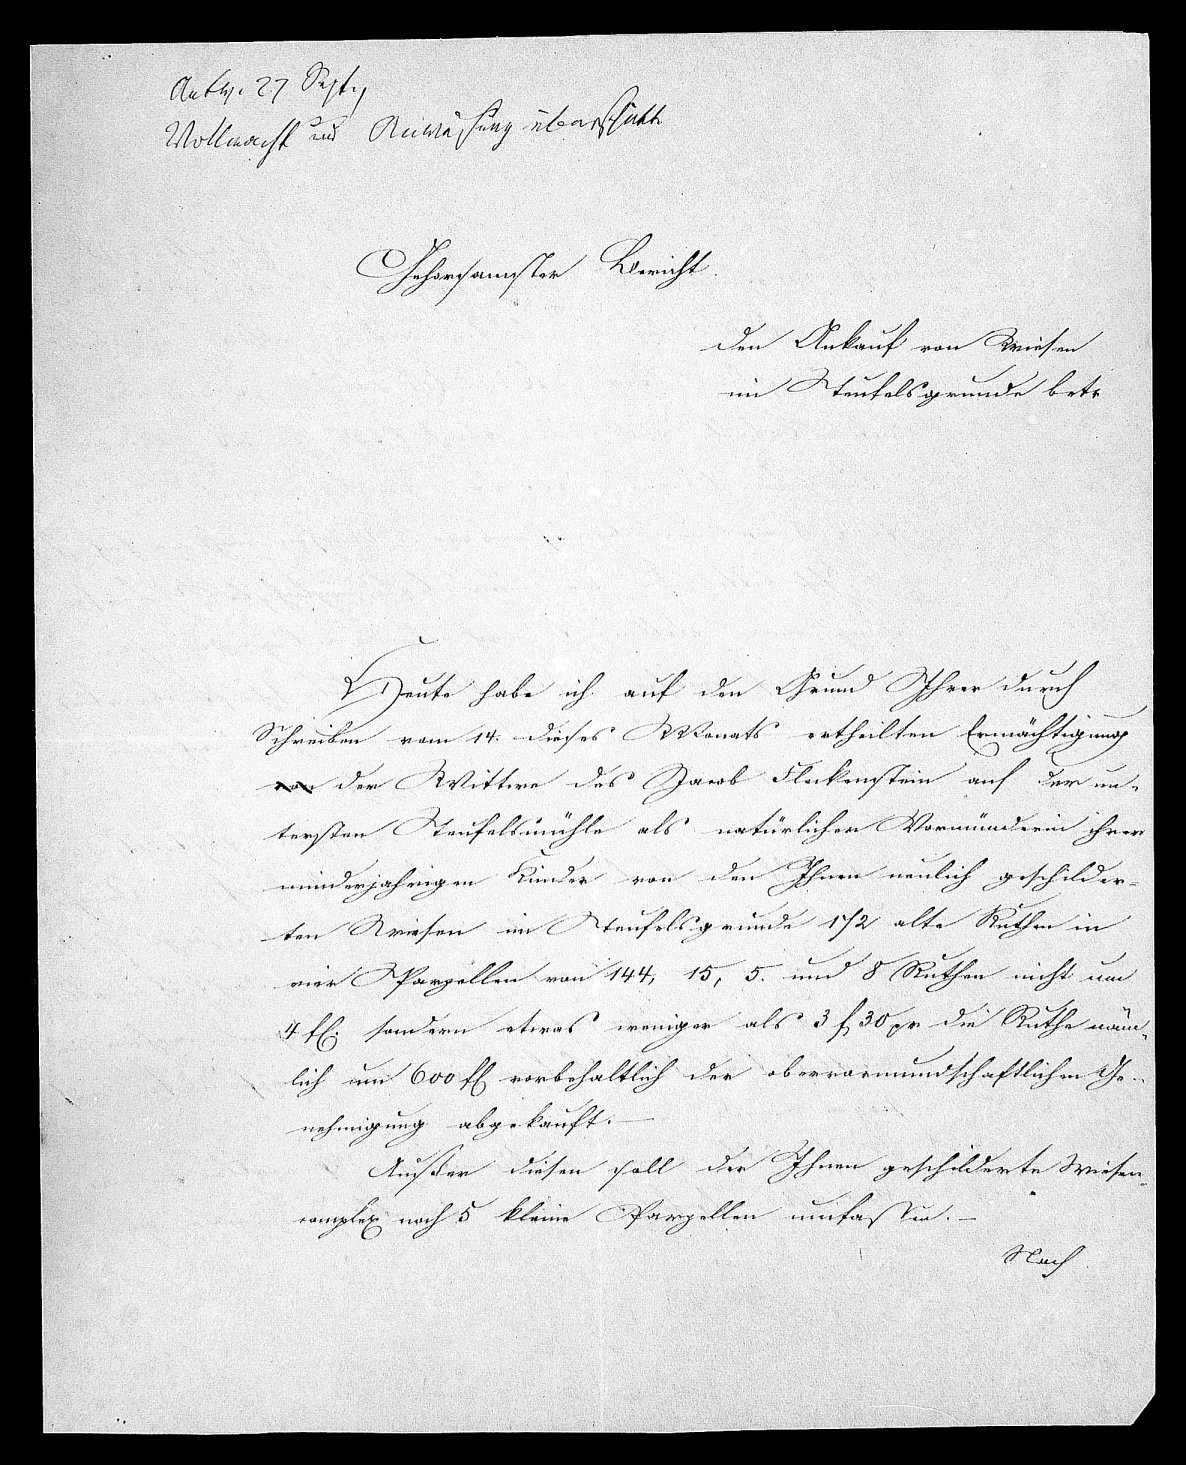 Antw. 27 Sept.
Vollmacht und Anweisung überschickt
Gehorsamster Bericht.
den Ankauf von Wiesen
im Teufelsgrunde betr
Heute habe ich auf den Grund Ihrer durch
Schreiben vom 14. dieses Monats ertheilten Ermächtigung
von der Wittwe des Jacob Fleckenstein auf der un-
tersten Teufelsmühle als natürlicher Vormünderin ihrer
minderjahrigen Kinder von den Ihnen neulich geschilder-
ten Wiesen im Teufelsgrunde 172 alte Ruthen in
vier Parzellen von 144, 15, 5. und 8 Ruthen nicht um
4 fl. sondern etwas weniger als 3 f 30 pr die Ruthe näm-
lich um 600 fl vorbehaltlich der obervormundschaftlichen Ge-
nehmigung abgekauft. –
Außer diesen soll der Ihnen geschilderte Wiesen-
complex noch 5 kleine Parzellen umfassen. –
Nach